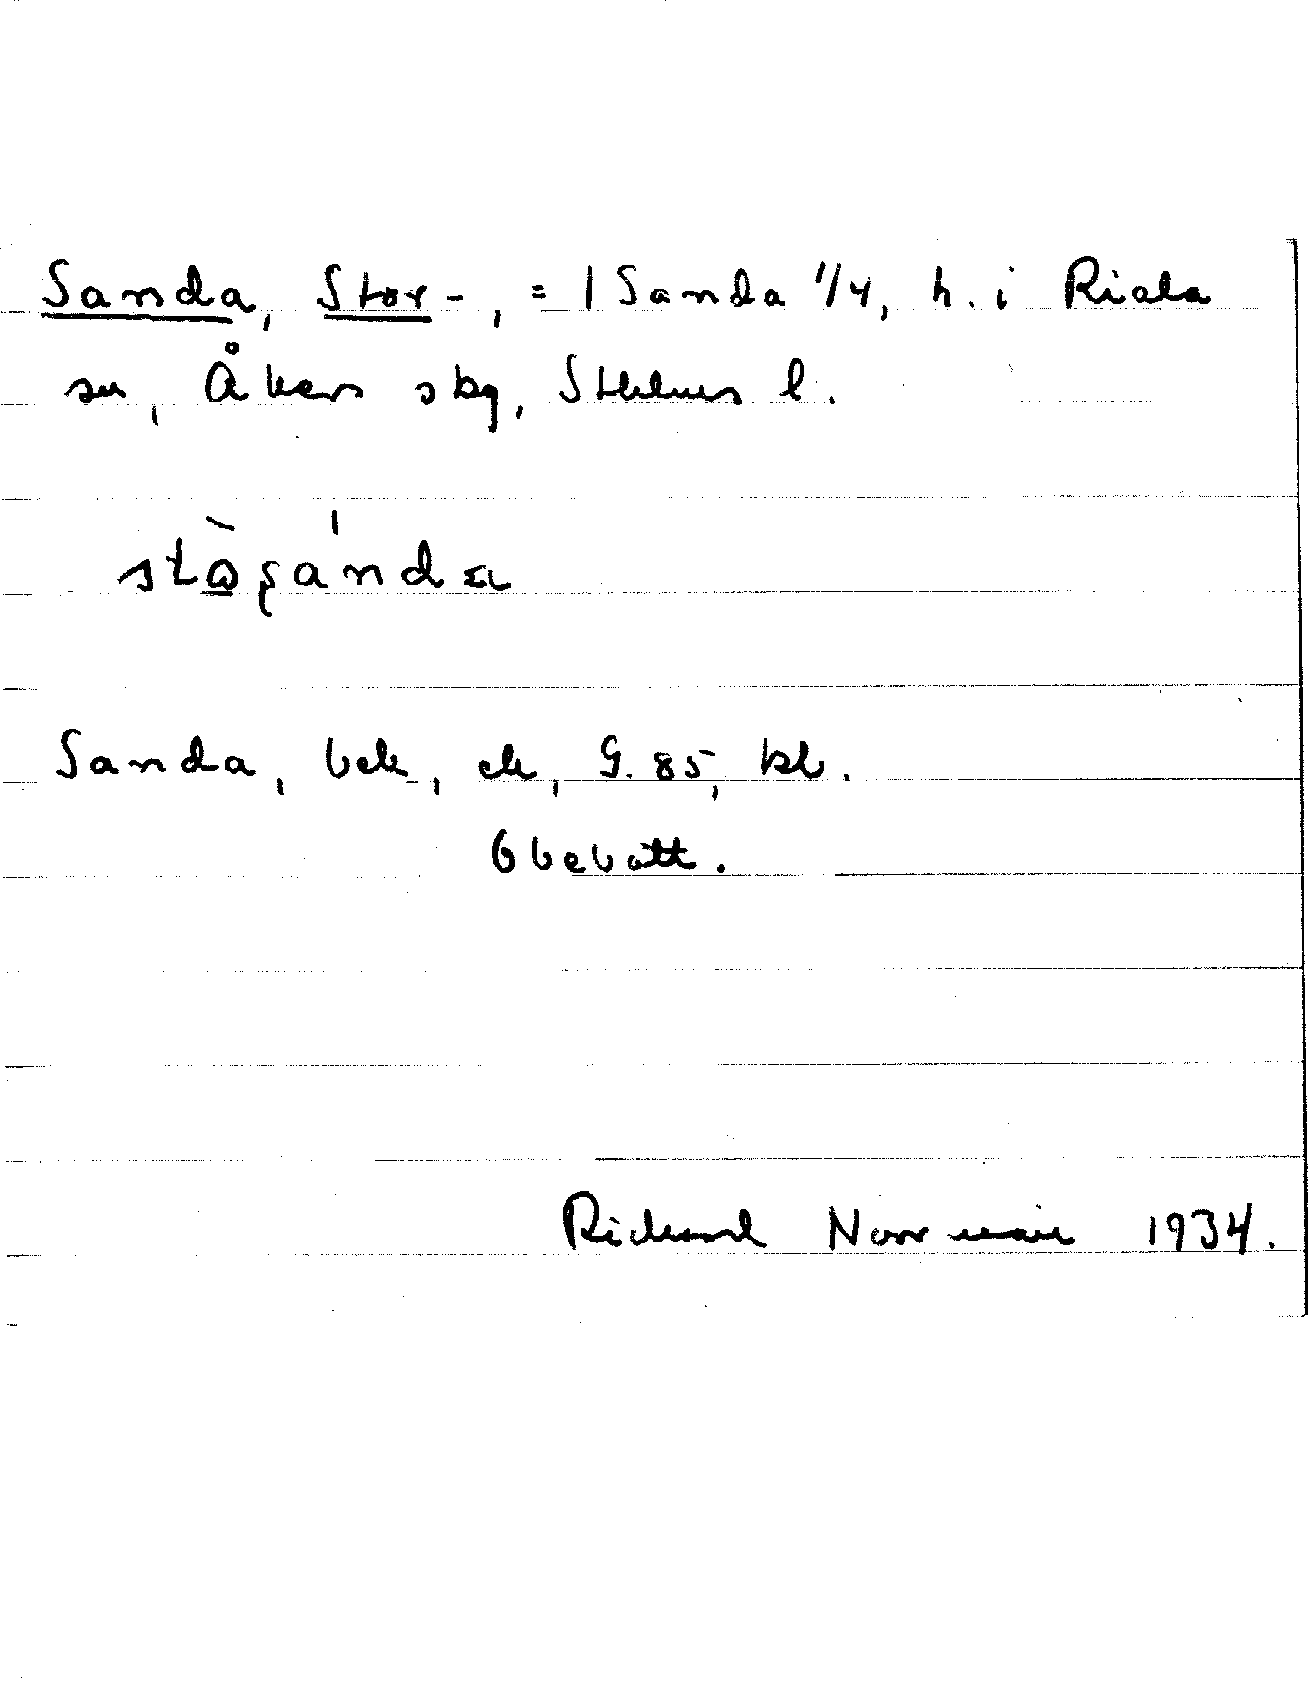 Sanda, Stor-, = 1 Sanda 1/4, h. i Riala
sn, Åkers skg, Sthlms l.
stɷ̀ʂánda
Sanda, bek, ek, G. 85, bl.
Obebott.
Richard Norrman 1934.